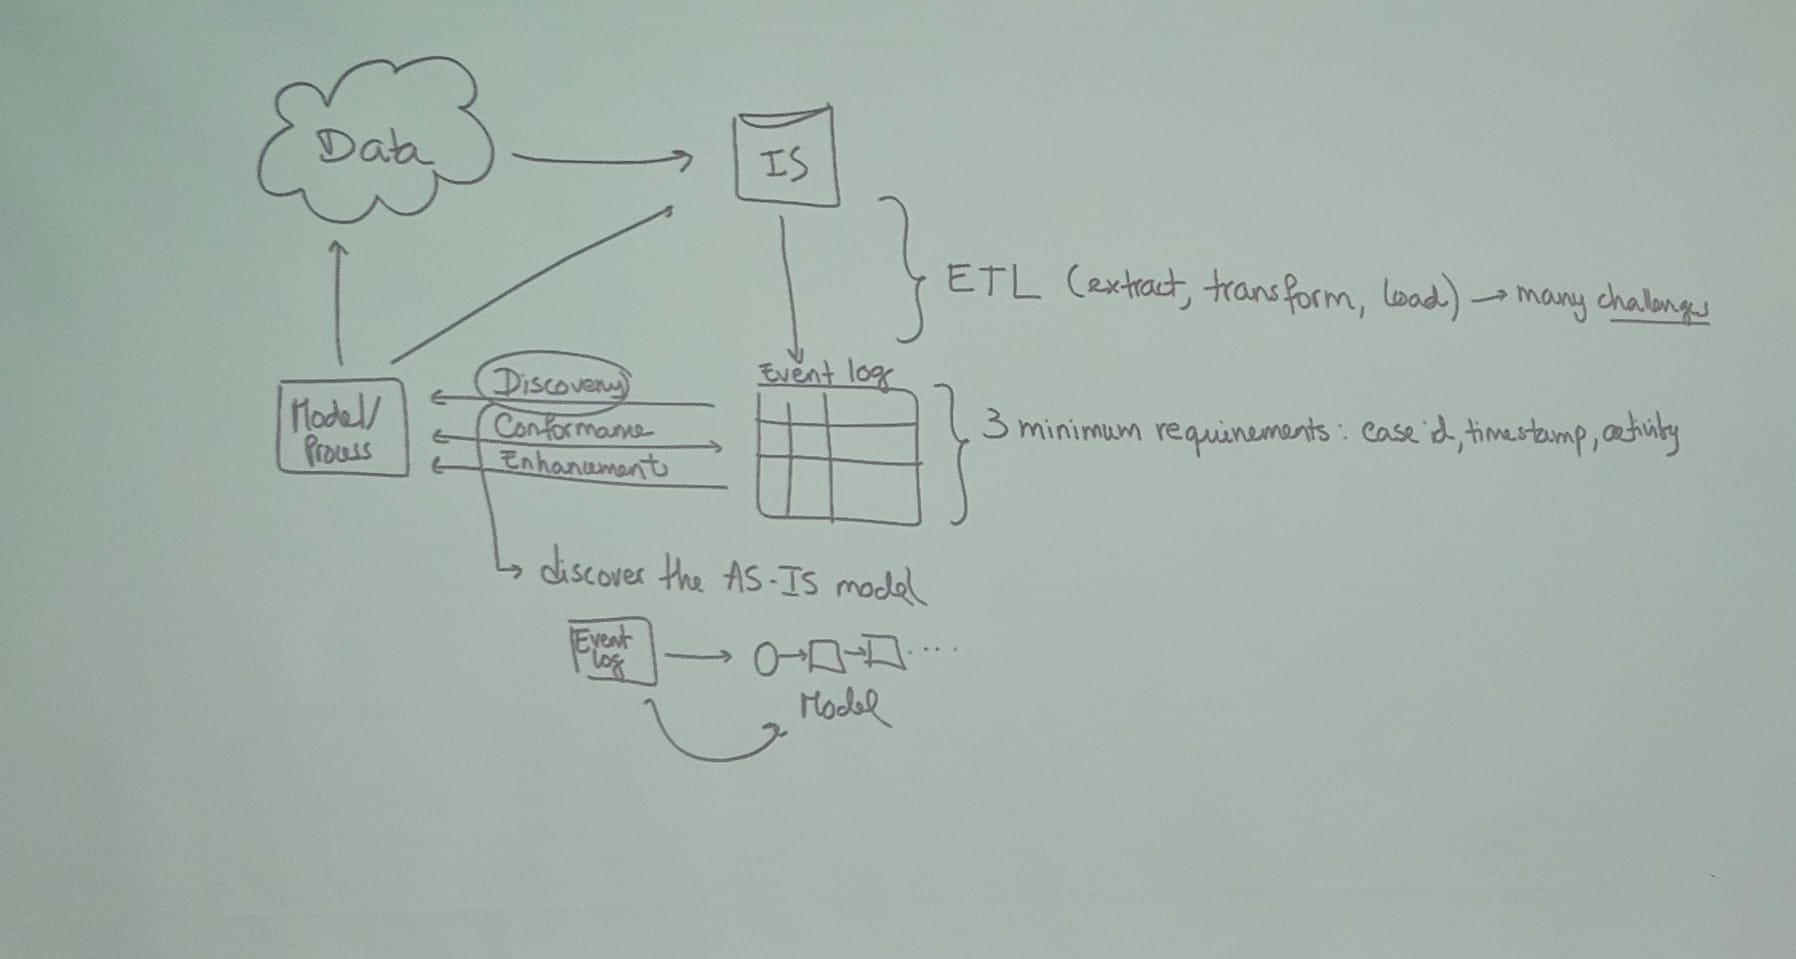 Data
IS
ETL (extract, transform, load) → many challenges
Event log
Model/
Process
Discovery
Conformance
Enhancement
3 minimum requirements: case id, timestamp, activity
↳ discover the AS-IS model
Event
log
Model